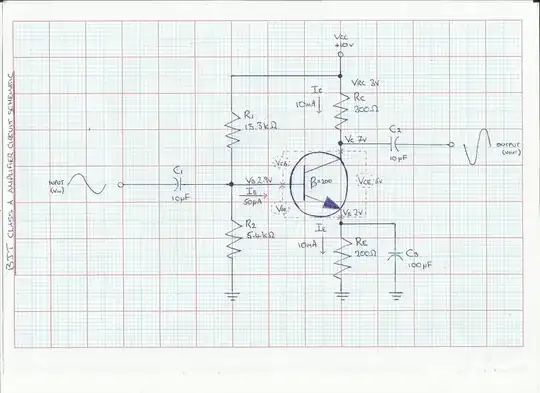 BJT CLASS A AMPLIFIER CIRCUIT SCHEMATIC
VCC
+10V
VRC 3V
IC
10mA
RC
300Ω
R1
15.3kΩ
VC 7V
C2
10µF
OUTPUT
(Vout)
INPUT
(Vin)
C1
10µF
VB 2.9V
IB
50µA
VCB
β=200
VBE
R2
5.4kΩ
IE
10mA
RE
200Ω
C3
100µF